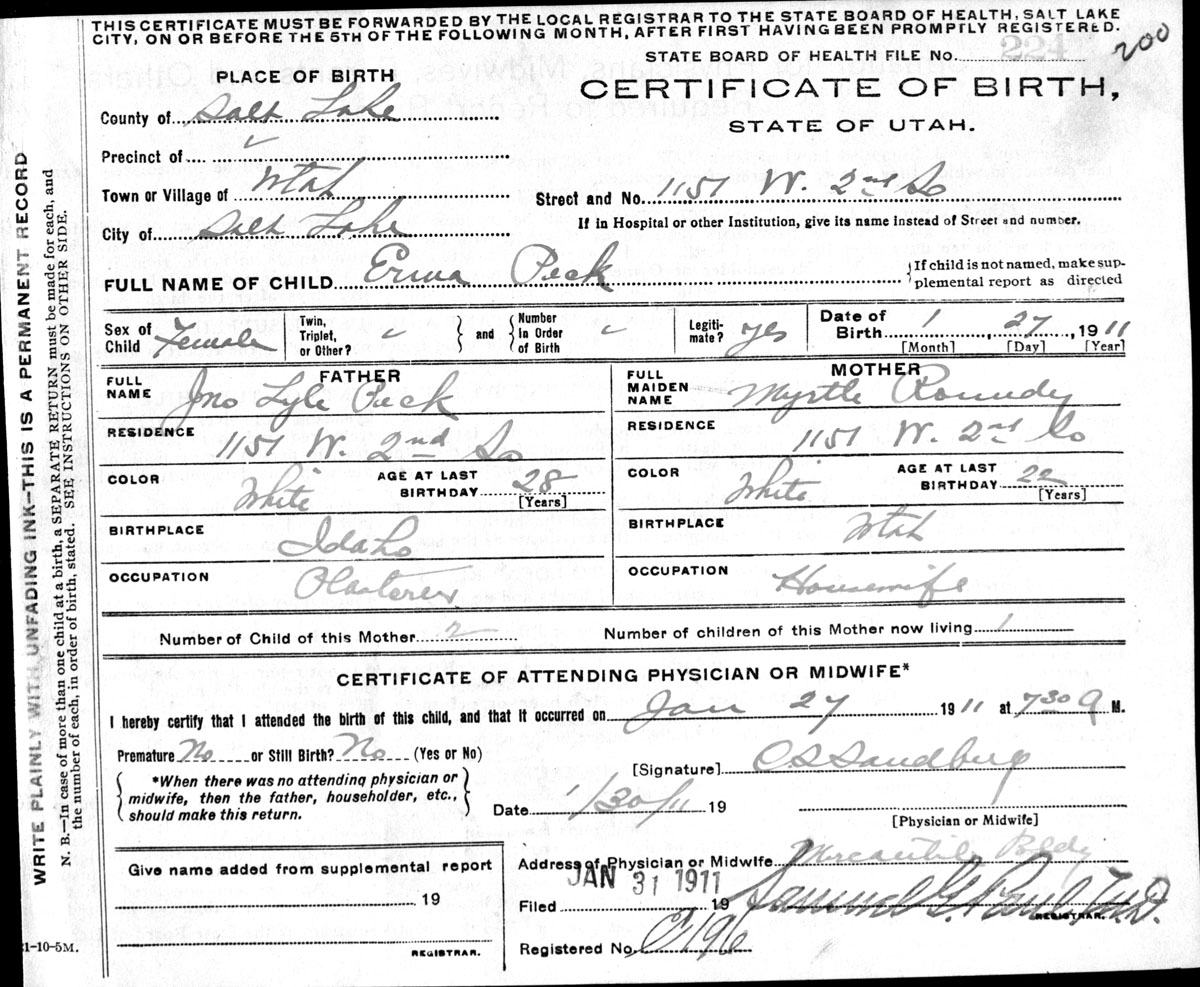 THIS CERTIFICATE MUST BE FORWARDED BY THE LOCAL REGISTRAR TO THE STATE BOARD OF HEALTH, SALT LAKE
CITY, ON OR BEFORE THE 5TH OF THE FOLLOWING MONTH, AFTER FIRST HAVING BEEN PROMPTLY REGISTERED.
STATE BOARD OF HEALTH FILE No. 224 200
PLACE OF BIRTH
CERTIFICATE OF BIRTH,
STATE OF UTAH.
County of Salt Lake
Precinct of
Town or Village of Utah
Street and No. 1151 W. 2nd So
If in Hospital or other Institution, give its name instead of Street and number.
City of Salt Lake
FULL NAME OF CHILD Erma Peck
If child is not named, make sup-
plemental report as directed
Sex of Child Female
Twin, Triplet, or Other?
and
Number in Order of Birth
Legiti-mate? Yes
Date of Birth 1 27, 1911
[Month] [Day] [Year]
FATHER
FULL NAME Jno Lyle Peck
RESIDENCE 1151 W. 2nd So
COLOR White
AGE AT LAST BIRTHDAY 28
[Years]
BIRTHPLACE Idaho
OCCUPATION Plasterer
MOTHER
FULL MAIDEN NAME Myrtle Roundy
RESIDENCE 1151 W. 2nd So
COLOR White
AGE AT LAST BIRTHDAY 22
[Years]
BIRTHPLACE Utah
OCCUPATION Housewife
Number of Child of this Mother 2
Number of children of this Mother now living 1
CERTIFICATE OF ATTENDING PHYSICIAN OR MIDWIFE*
I hereby certify that I attended the birth of this child, and that it occurred on Jan 27 1911 at 7 30 M.
Premature No or Still Birth? No (Yes or No)
*When there was no attending physician or
midwife, then the father, householder, etc.,
should make this return.
[Signature] C.S. Sandberg
Date 1/30/11 19
[Physician or Midwife]
Give name added from supplemental report
19
REGISTRAR.
Address of Physician or Midwife Mercantile Bldg
JAN 31 1911
Filed 19 Samuel G. Paul, M.D.
REGISTRAR.
Registered No. 196
21-10-5M.
WRITE PLAINLY WITH UNFADING INK—THIS IS A PERMANENT RECORD
N. B.—In case of more than one child at a birth, a SEPARATE RETURN must be made for each, and
the number of each, in order of birth, stated. SEE INSTRUCTIONS ON OTHER SIDE.